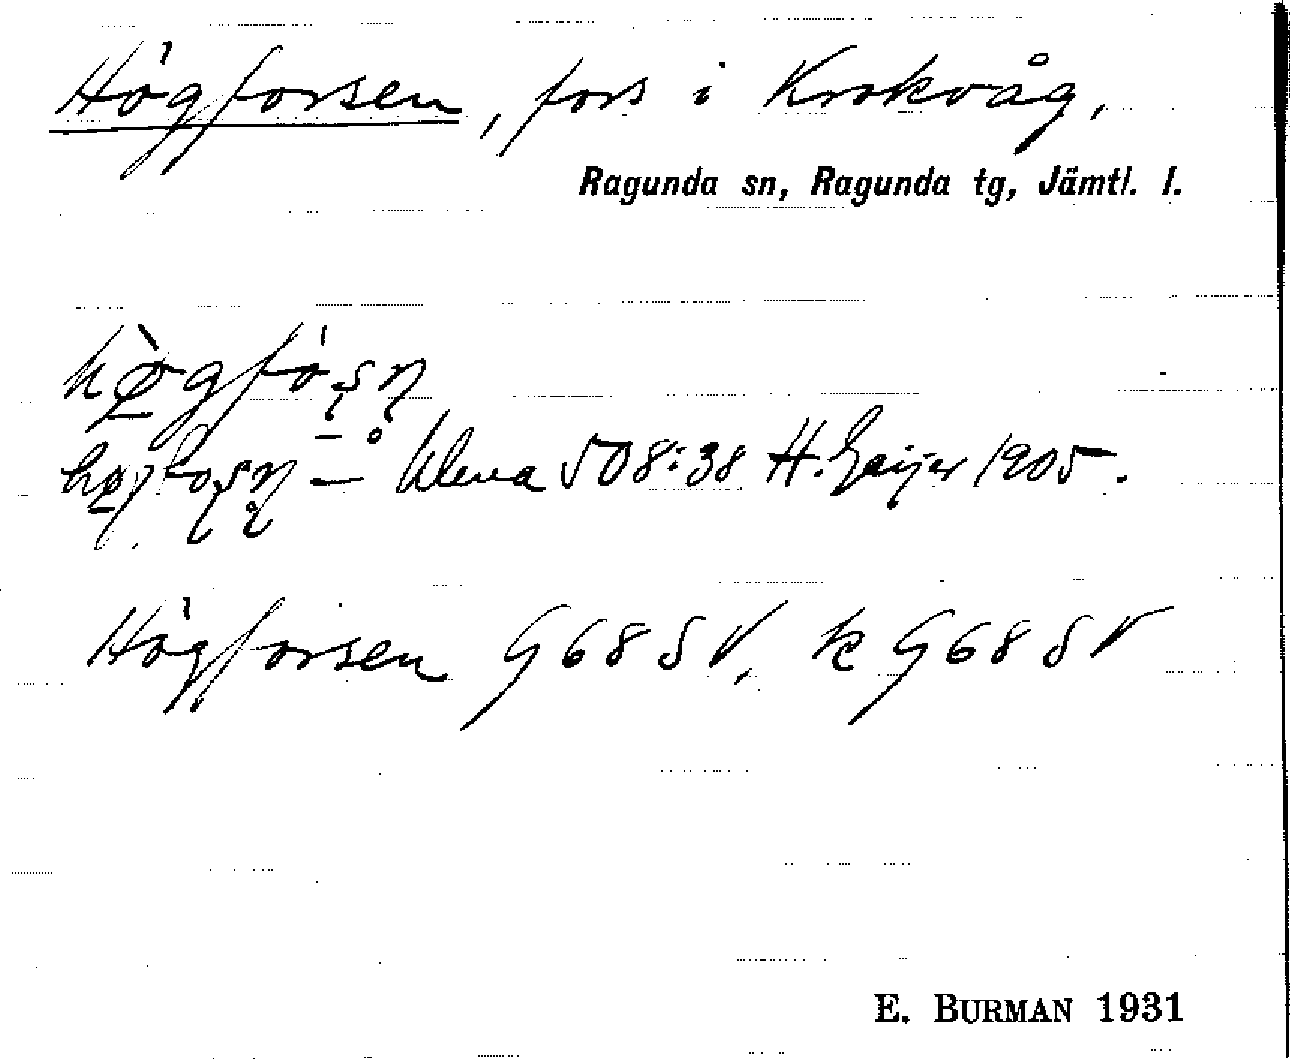 Högforsen, fors i Krokvåg,
Ragunda sn, Ragunda tg, Jämtl. l.
— Ulma 508:38 H. Geijer 1905.
Högforsen G68SV, k G68SV
E. BURMAN 1931